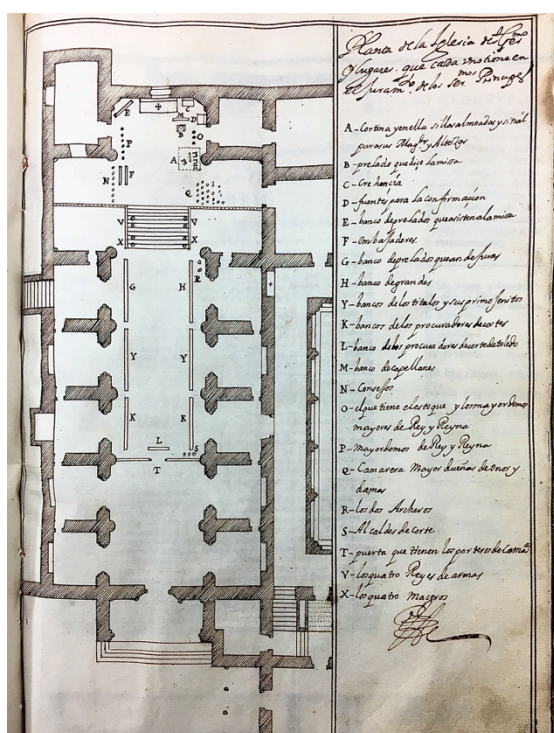 Planta de la Iglesia de S. Germo
y lugares que cada uno tiene en
el juramto. de los sermos Principes
A - Cortina y en ella sillas almoadas y sitial
para sus Magdes y Altezas
B - prelado que dice la missa
C - Credencia
D - fuentes para la confirmacion
E - banco de prelados que asisten a la misa
F - embajadores
G - banco de prelados que an de jurar
H - banco de grandes
Y - bancos de los titulos y sus primogenitos
K - bancos de los procuradores de cortes
L - banco de los procuradores de corte de toledo
M - banco de capellanes
N - Consejos
O - el que tiene el estoque y los mayordomos
mayores de Rey y Reyna
P - Mayordomos de Rey y Reyna
Q - Camarera Mayor dueñas de onor y
damas
R - los dos Archeros
S - Alcaldes de corte
T - puerta que tienen los porteros de camª
V - los quatro Reyes de armas
X - los quatro maceros
E
M
C
D
B
O
P
A
N
F
Q
V
V
X
X
R
G
H
Y
Y
K
K
L
S
T